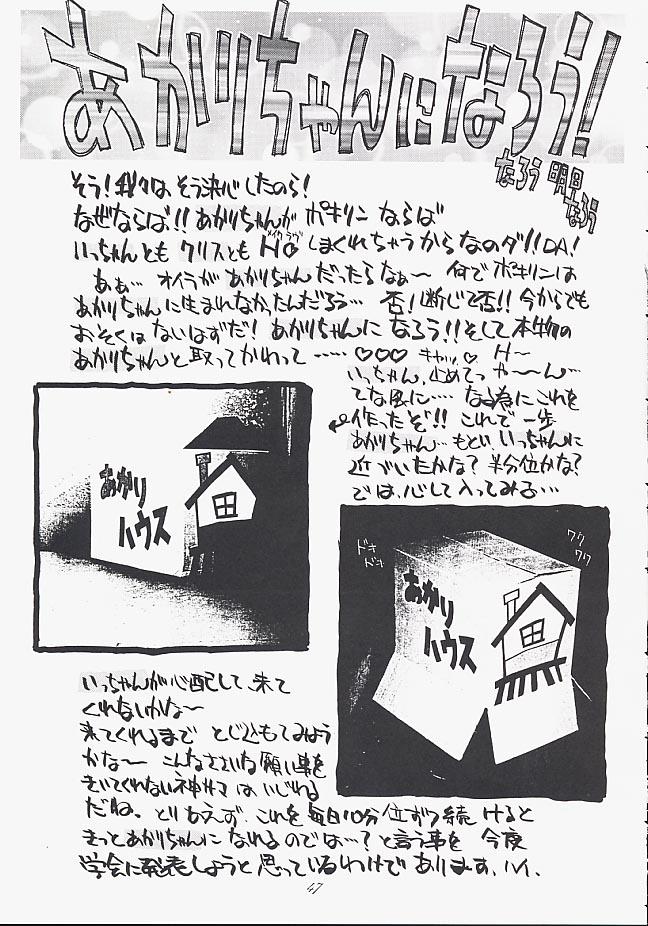 あかりちゃんになろう!
なろう 明日なろう
そう!我々は、そう決心したのら!
なぜならば!!あかりちゃんが ポキリン ならば
いっちゃんとも クリスとも メイクラヴ しまくれちゃうからなのダ!!DA!
あぁ… オイラが あかりちゃん だったらなぁ〜 何でポキリンは
あかりちゃんに生まれなかったんだろう… 否!断じて否!!今からでも
おそくはないはずだ!あかりちゃんに なろう!!そして本物の
あかりちゃんと取ってかわって……♡♡♡ キャッ♡ H〜
いっちゃん、止めてっ や〜ん…
てな風に… なる為にこれを
作ったぞ!! これで一歩
あかりちゃん…もとい いっちゃんに
近づいたかな?半分位かな?
では、心して入ってみる…
あかり
ハウス
ドキ
ドキ
ワク
ワク
あかり
ハウス
いっちゃんが心配して、来て
くれないかな〜
来てくれるまで とじ込もてみよう
かな〜 こんなささいな願い事を
きいてくれない神サマは、いじわる
だね。とりあえず、これを毎日10分位ずつ続けると
きっとあかりちゃんに なれるのでは…?と言う事を 今度
学会に発表しようと思っているわけであります、ハイ、
47